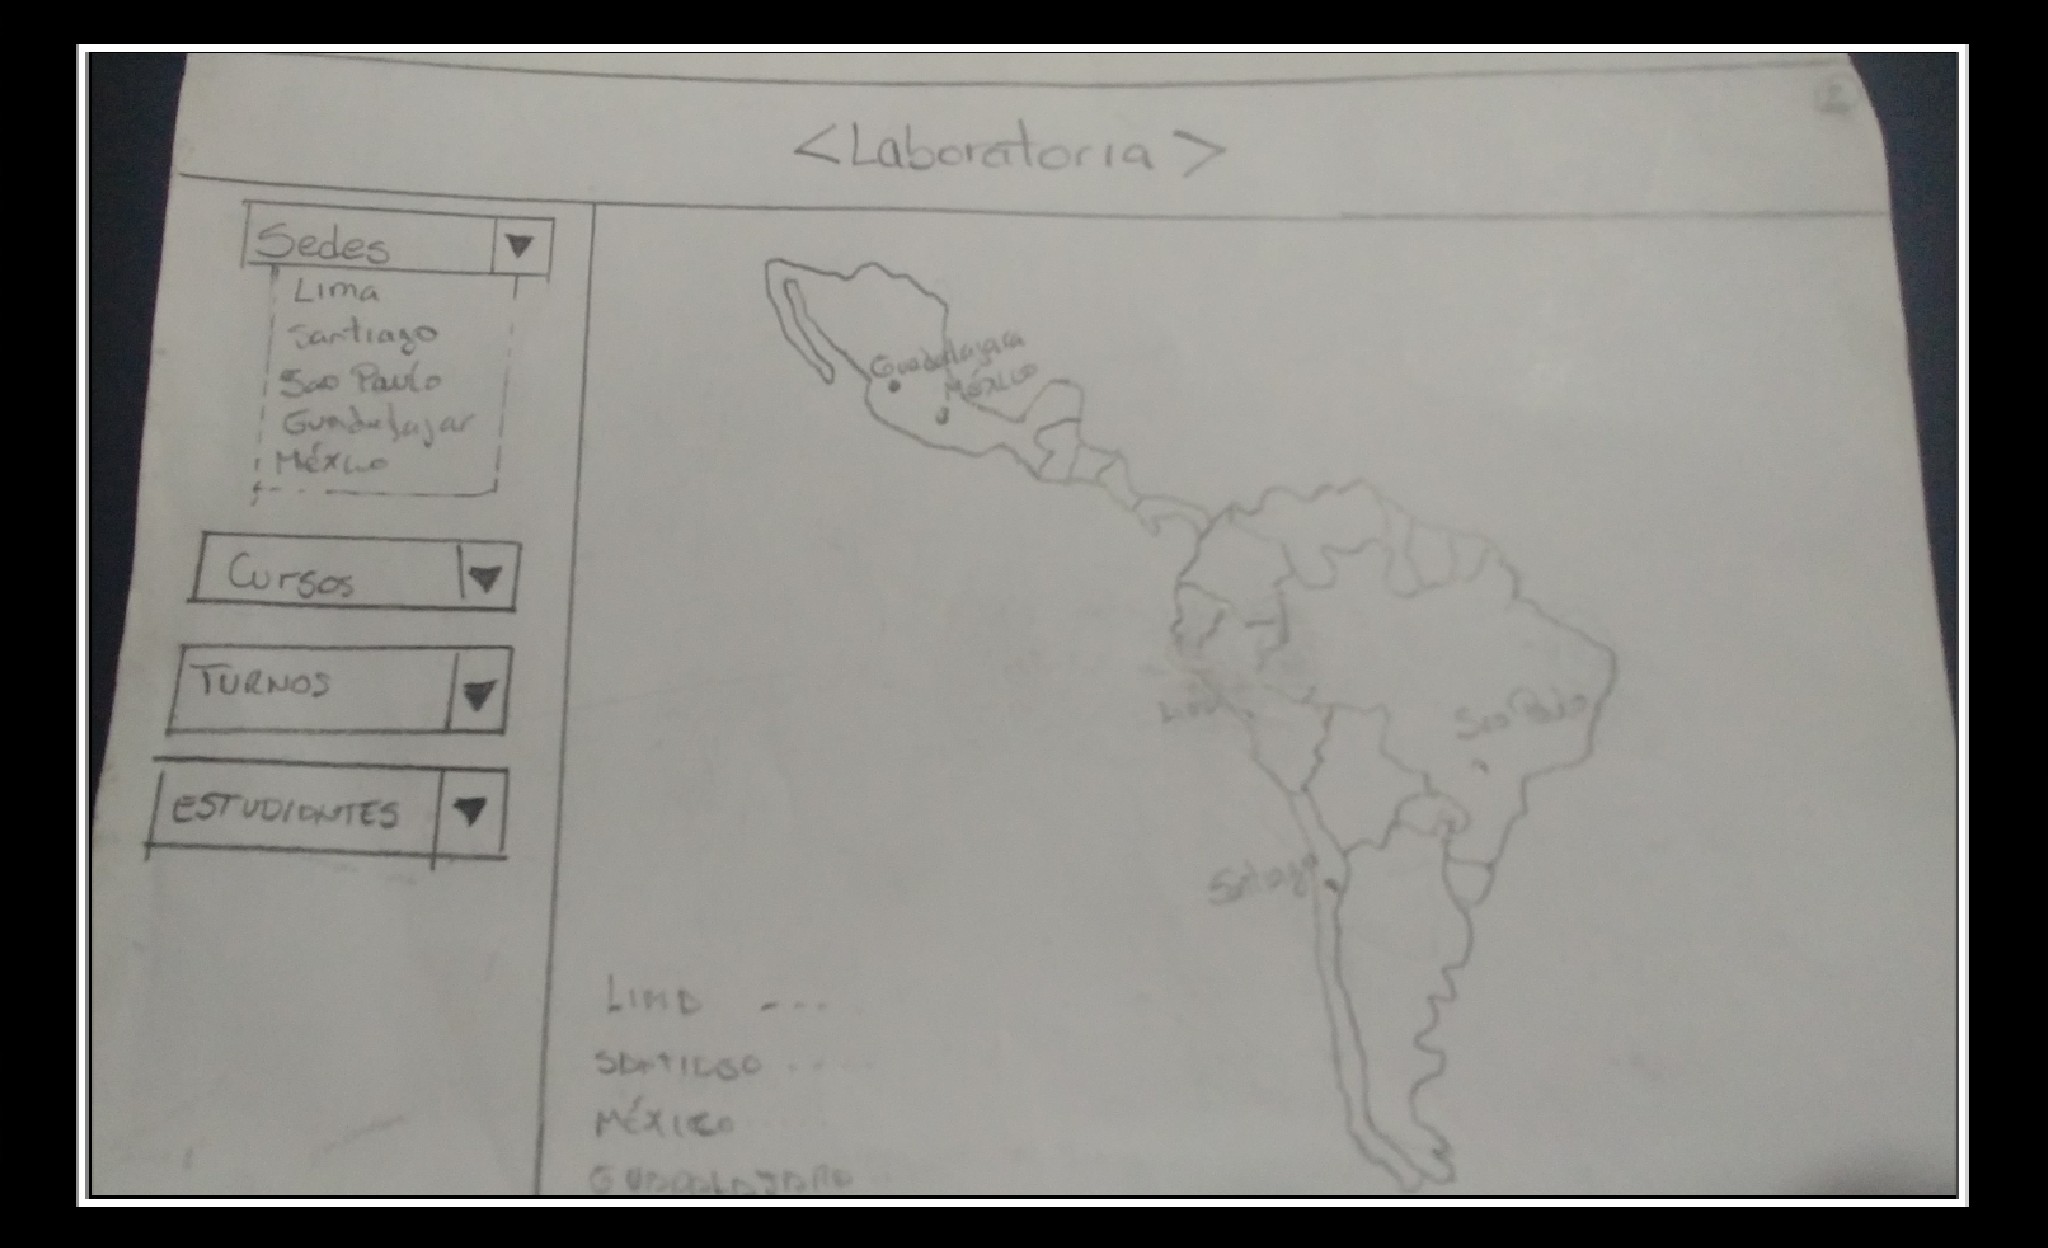 2
<Laboratoria>
Sedes
Lima
Santiago
Sao Paulo
Guadalajar
México
Cursos
TURNOS
ESTUDIANTES
Guadalajara
México
Lima
Sao Paulo
LIMA ---
SANTIAGO ....
MÉXICO
GUADALAJARA